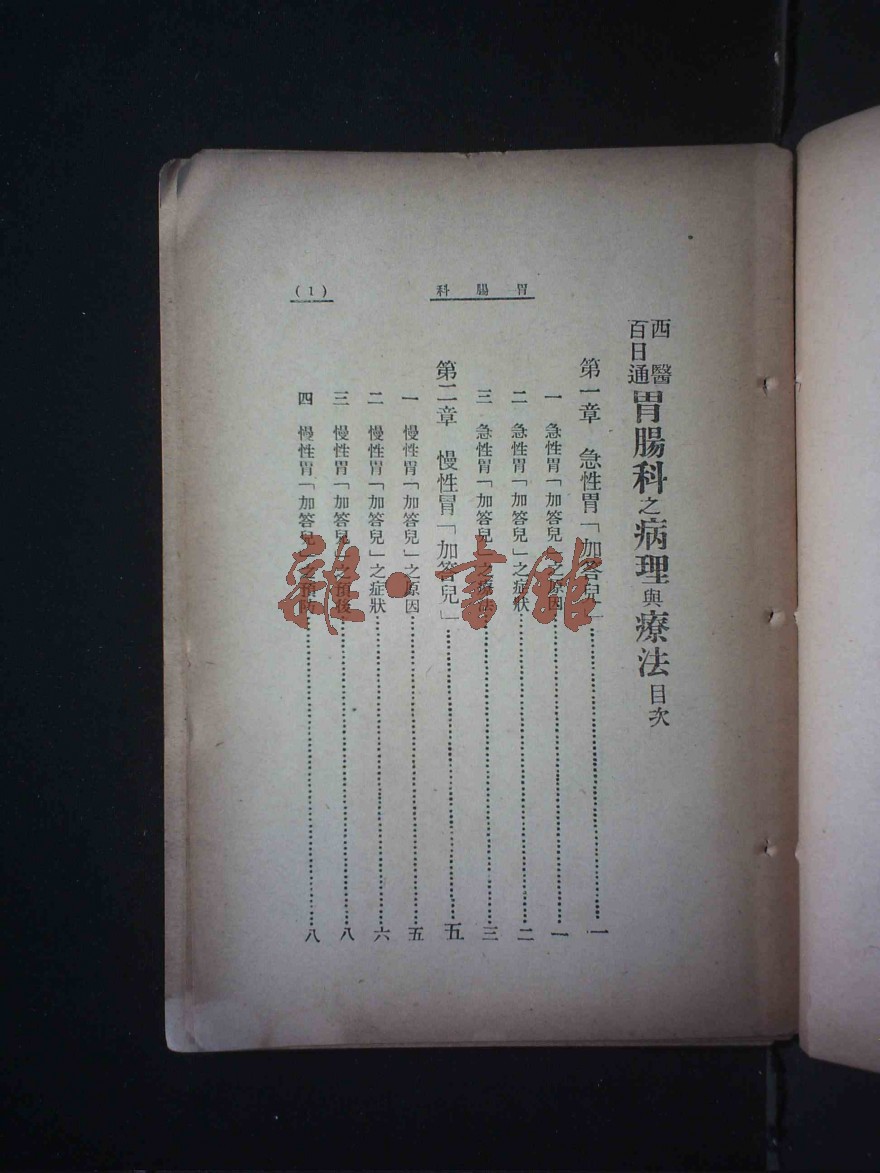 胃腸科
(1)
西醫
百日通
胃腸科之病理與療法目次
第一章　急性胃「加答兒」……一
一　急性胃「加答兒」之原因……一
二　急性胃「加答兒」之症狀……二
三　急性胃「加答兒」之療法……三
第二章　慢性胃「加答兒」……五
一　慢性胃「加答兒」之原因……五
二　慢性胃「加答兒」之症狀……六
三　慢性胃「加答兒」之預後……八
四　慢性胃「加答兒」之預防……八
雜·書館